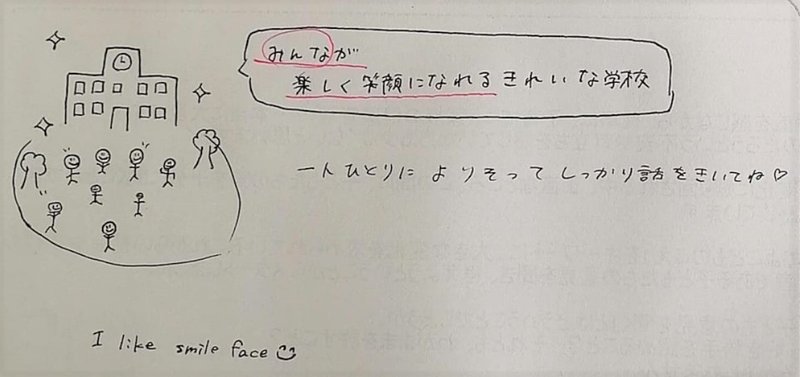 みんなが
楽しく笑顔になれるきれいな学校
一人ひとりによりそってしっかり話をきいてね♡
I like smile face